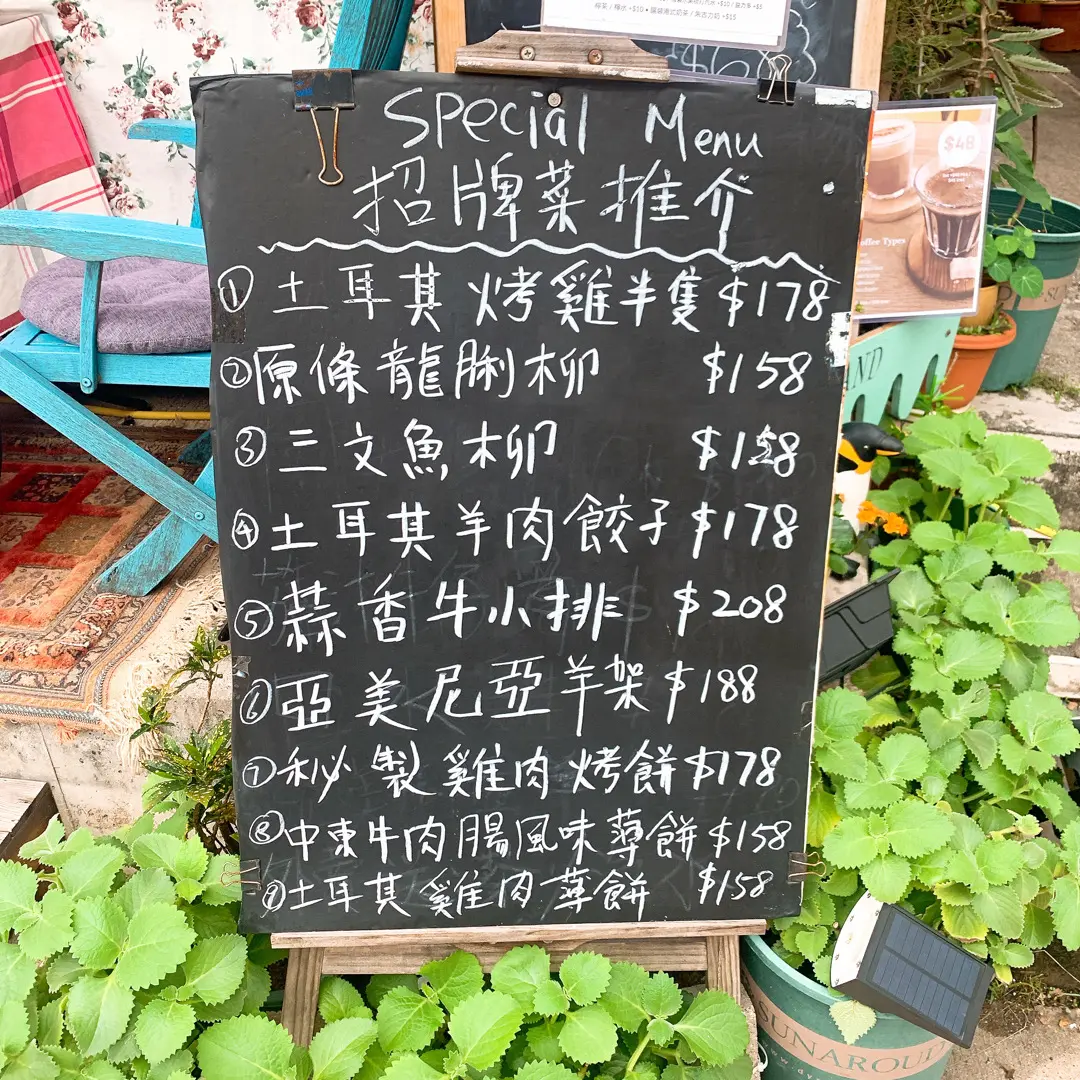 檸茶 / 檸水 ~$10 • 罐裝港式奶茶 / 朱古力奶 ~$15
Special Menu
招牌菜推介
① 土耳其 烤雞半隻 $178
② 原條龍脷柳 $158
③ 三文魚柳 $158
④ 土耳其羊肉餃子 $178
⑤ 蒜香牛小排 $208
⑥ 亞美尼亞羊架 $188
⑦ 秘製雞肉烤餅 $178
⑧ 中東牛肉腸風味薄餅 $158
⑨ 土耳其雞肉薄餅 $158
$48
offee Types
AND
SUNAROU